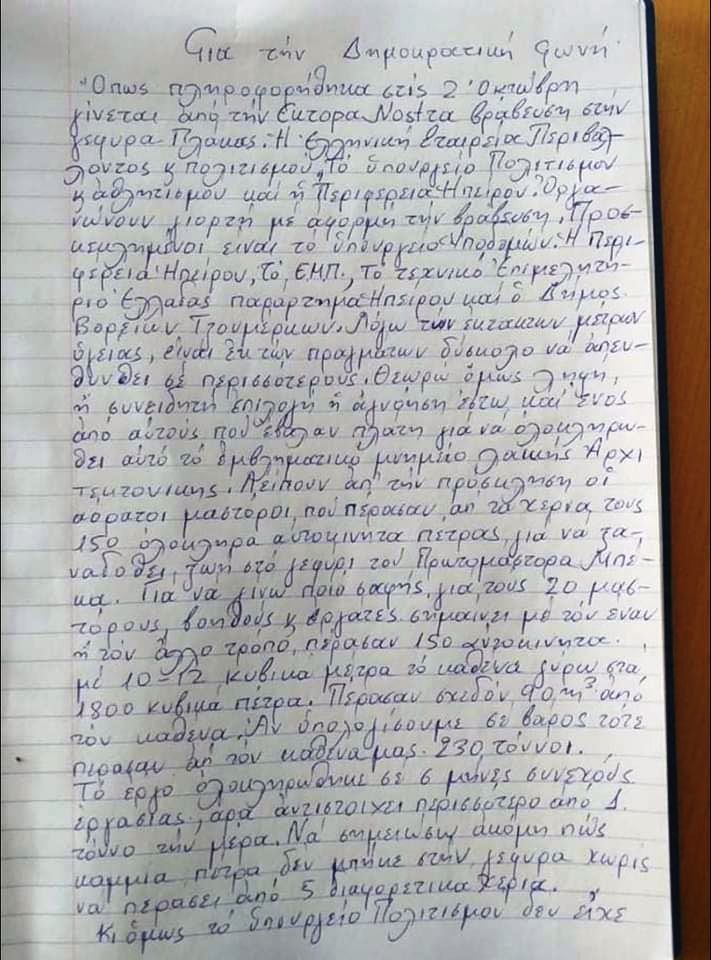 Για τήν Δημοκρατική φωνή
Όπως πληροφορήθηκα στίς 2 Οκτώβρη
γίνεται από τήν Εκτορα Nostra βράβευση στήν
γεφυρα Πλακας. Η Ελληνική Εταιρεία Περιβα-
λοντος κ πολιτισμού, Τό ύπουργείο Πολιτισμου
κ αθλητισμου και ή Περιφερεια Ηπείρου. Όργα-
νώνουν γιορτή μέ αφορμη τήν βράβευση. Προσ-
κεκλημένοι ειναι το ύπουργείο Υποδομών. Η Περι-
φερεια Ηπείρου, Τό, Ε.Μ.Π., Τό τεχνικό Επιμελητή-
ριο Ελλαδας παραρτημα Ηπειρου και ό Δήμος
Βορείων Τζουμέρκων. Λόγω τών έκτακτων μετρων
ύγειας, είναι έκ τών πραγμάτων δύσκολο νά άπευ-
θυνθει σέ περισσότερους. Θεωρώ όμως λήψη,
ή συνειδητή επιλογή ή αγνόηση έστω και ένος
από αύτούς πού έβαλαν πλατη για να όλοκληρω-
θει αύτό τό έμβληματικό μνημείο λαικής Αρχι
τεκτονικης. Λείπουν απ' τήν πρόσκληση οί
αόρατοι μαστοροι, πού πέρασαν απ' τα χερια τους
150 όλοκληρα αυτοκινητα πετρας, για νά ξα-
ναδοθει ζωη στό γεφυρι του Πρωτομαστορα Μπέ-
κα. Για να γινω ποιο σαφης, για τους 20 μασ-
τόρους, βοηθούς κ εργατες σημαινει με τόν έναν
ή τόν άλλο τρόπο, πέρασαν 150 αυτοκινητα.
μέ 10-12 κυβικα μέτρα τό καθενα γυρω στα
1800 κυβικά πέτρα. Πέρασαν σχεδόν 90 m³ από
τόν καθενα. Αν ύπολογίσουμε σε βαρος τότε
πέρασαν απ' τόν καθενα μας 230 τόννοι.
Τό έργο όλοκληρώθηκε σε 6 μήνες συνεχούς
έργασίας, αρα άντιστοιχει περισσότερο από 1
τόννο τήν μέρα. Νά σημειώσω ακόμη πώς
καμμια πετρα δεν μπήκε στήν γεφυρα χωρίς
να περασει από 5 διαφορετικα χερια.
Κι όμως τό ύπουργείο Πολιτισμου δεν είχε